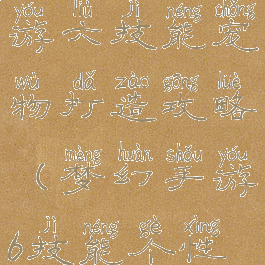 yóu liù jì néng chǒng
游六技能宠
wù dǎ zào gōng lüè
物打造攻略
mèng huàn shǒu yóu
（梦幻手游
jì néng gè xìng
6技能个性